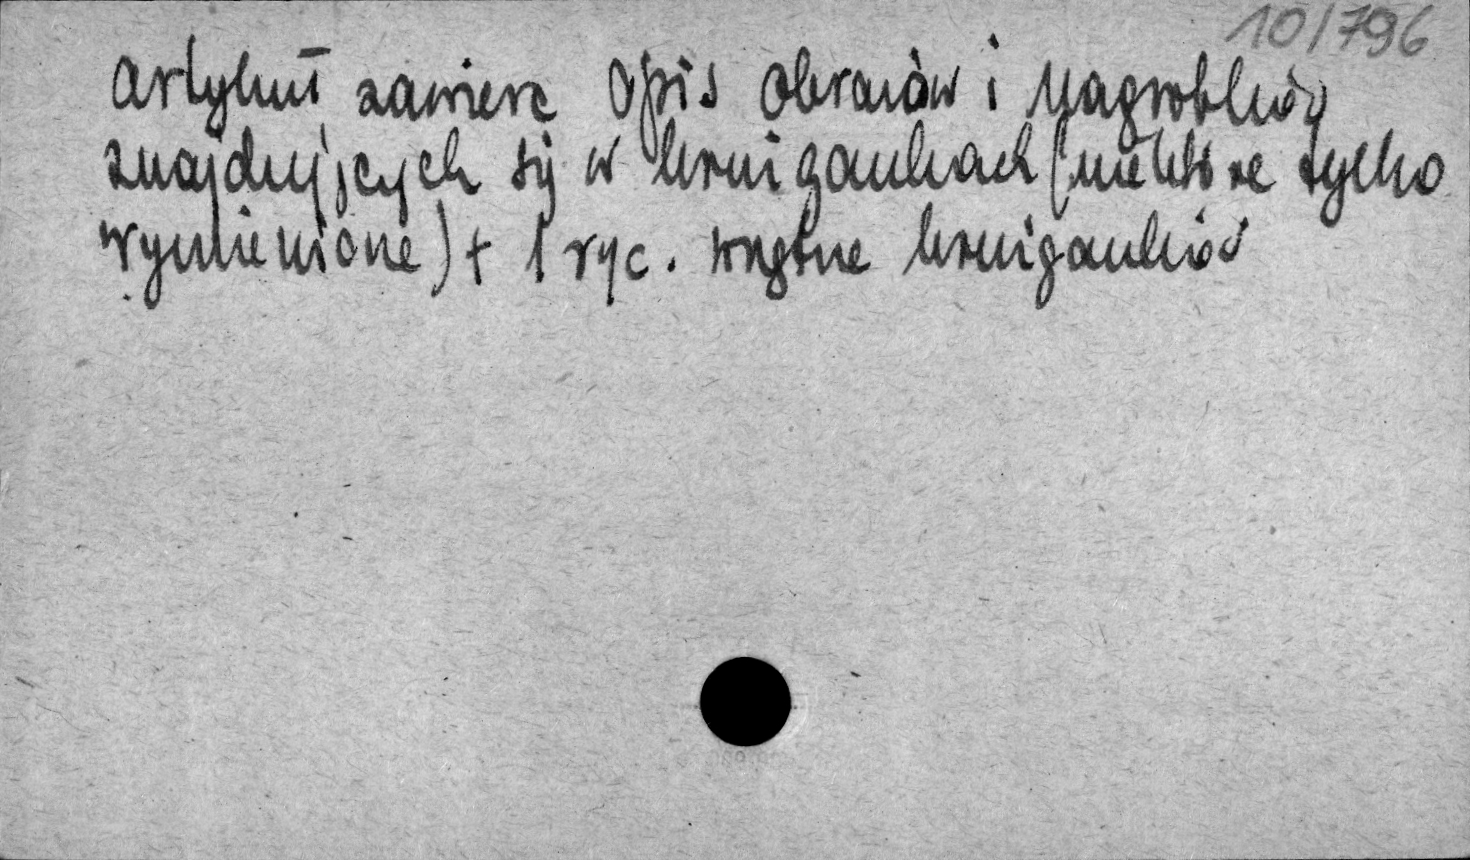 10/796
artykuł zawiera opis obrazów i nagrobków
znajdujących się w krużgankach (niektóre tylko
wymienione) + 1 ryc. wnętrze krużganków